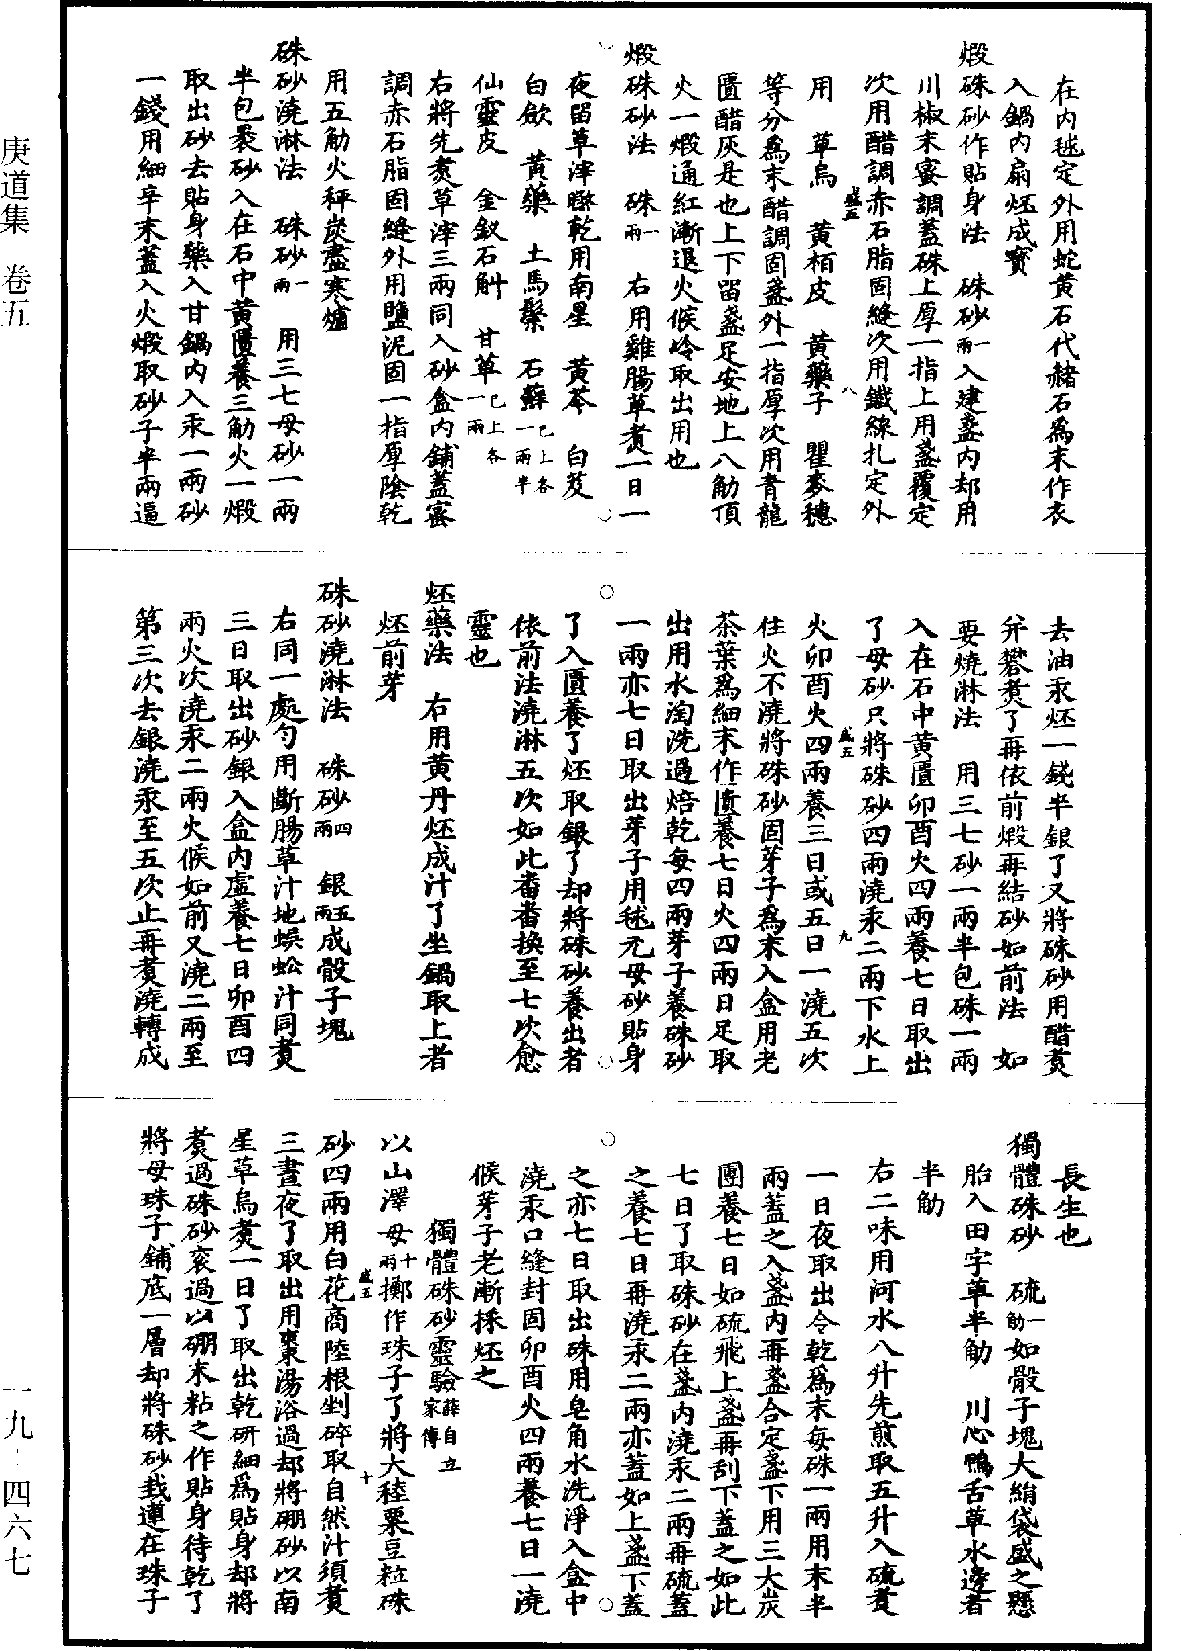 庚道集　卷五
一九-四六七
在内毬定外用蛇黄石代赭石爲末作衣
入鍋内扇炡成寳
煅硃砂作貼身法　硃砂一兩入建盞内却用
川椒末蜜調蓋硃上厚一指上用盞覆定
次用醋調赤石脂固縫次用鐵線扎定外
盛五　八
用　草烏　黄栢皮　黄藥子　瞿麥穗
等分爲末醋調固盞外一指厚次用青龍
匱醋灰是也上下留盞足安地上八觔頂
火一煅通紅漸退火候冷取出用也
煅硃砂法　硃一兩　右用雞腸草煑一日一
夜留草滓曒乾用南星　黄芩　白芨
白歛　黄藥　土馬鬃　石蘇已上各一兩半
仙靈皮　金釵石斛　甘草已上各一兩
右將先煑草滓三兩同入砂盒内鋪蓋蜜
調赤石脂固縫外用鹽泥固一指厚陰乾
用五觔火秤炭盡寒爐
硃砂澆淋法　硃砂一兩　用三七母砂一兩
半包裹砂入在石中黄匱養三觔火一煅
取出砂去貼身藥入甘鍋内入汞一兩砂
一錢用細辛末蓋入火煅取砂子半兩逼
去油汞炡一錢半銀了又將硃砂用醋煑
并礬煑了再依前煅再結砂如前法　如
要燒淋法　用三七砂一兩半包硃一兩
入在石中黄匱卯酉火四兩養七日取出
了母砂只將硃砂四兩澆汞二兩下水上
盛五　九
火卯酉火四兩養三日或五日一澆五次
住火不澆將硃砂固芽子爲末入盒用老
茶葉爲細末作匱養七日火四兩日足取
出用水淘洗過焙乾每四兩芽子養硃砂
一兩亦七日取出芽子用毬元母砂貼身
了入匱養了炡取銀了却將硃砂養出者
依前法澆淋五次如此畨畨換至七次愈
靈也
炡藥法　右用黄丹炡成汁了坐鍋取上者
炡前芽
硃砂澆淋法　硃砂四兩　銀五兩成骰子塊
右同一處勺用斷腸草汁地蜈蚣汁同煑
三日取出砂銀入盒内虚養七日卯酉四
兩火次澆汞二兩火候如前又澆二兩至
第三次去銀澆汞至五次止再煑澆轉成
長生也
獨體硃砂　硫一觔如骰子塊大絹袋盛之懸
胎入田字草半觔　川心鴨舌草水邊者
半觔
右二味用河水八升先煎取五升入硫煑
一日夜取出令乾爲末每硃一兩用末半
兩蓋之入盞内再盞合定盞下用三大炭
團養七日如硫飛上盞再刮下蓋之如此
七日了取硃砂在盞内澆汞二兩再硫蓋
之養七日再澆汞二兩亦蓋如上盞下蓋
之亦七日取出硃用皂角水洗淨入盒中
澆汞口縫封固卯酉火四兩養七日一澆
候芽子老漸採炡之
獨體硃砂靈驗薛自立家傳
以山澤母十兩擲作珠子了將大䅘粟豆粒硃
盛五　十
砂四兩用白花商陸根剉碎取自然汁須煑
三晝夜了取出用棗湯浴過却將硼砂以南
星草烏煑一日了取出乾研細爲貼身却將
煑過硃砂衮過以硼末粘之作貼身待乾了
將母珠子鋪底一層却將硃砂栽蓮在珠子